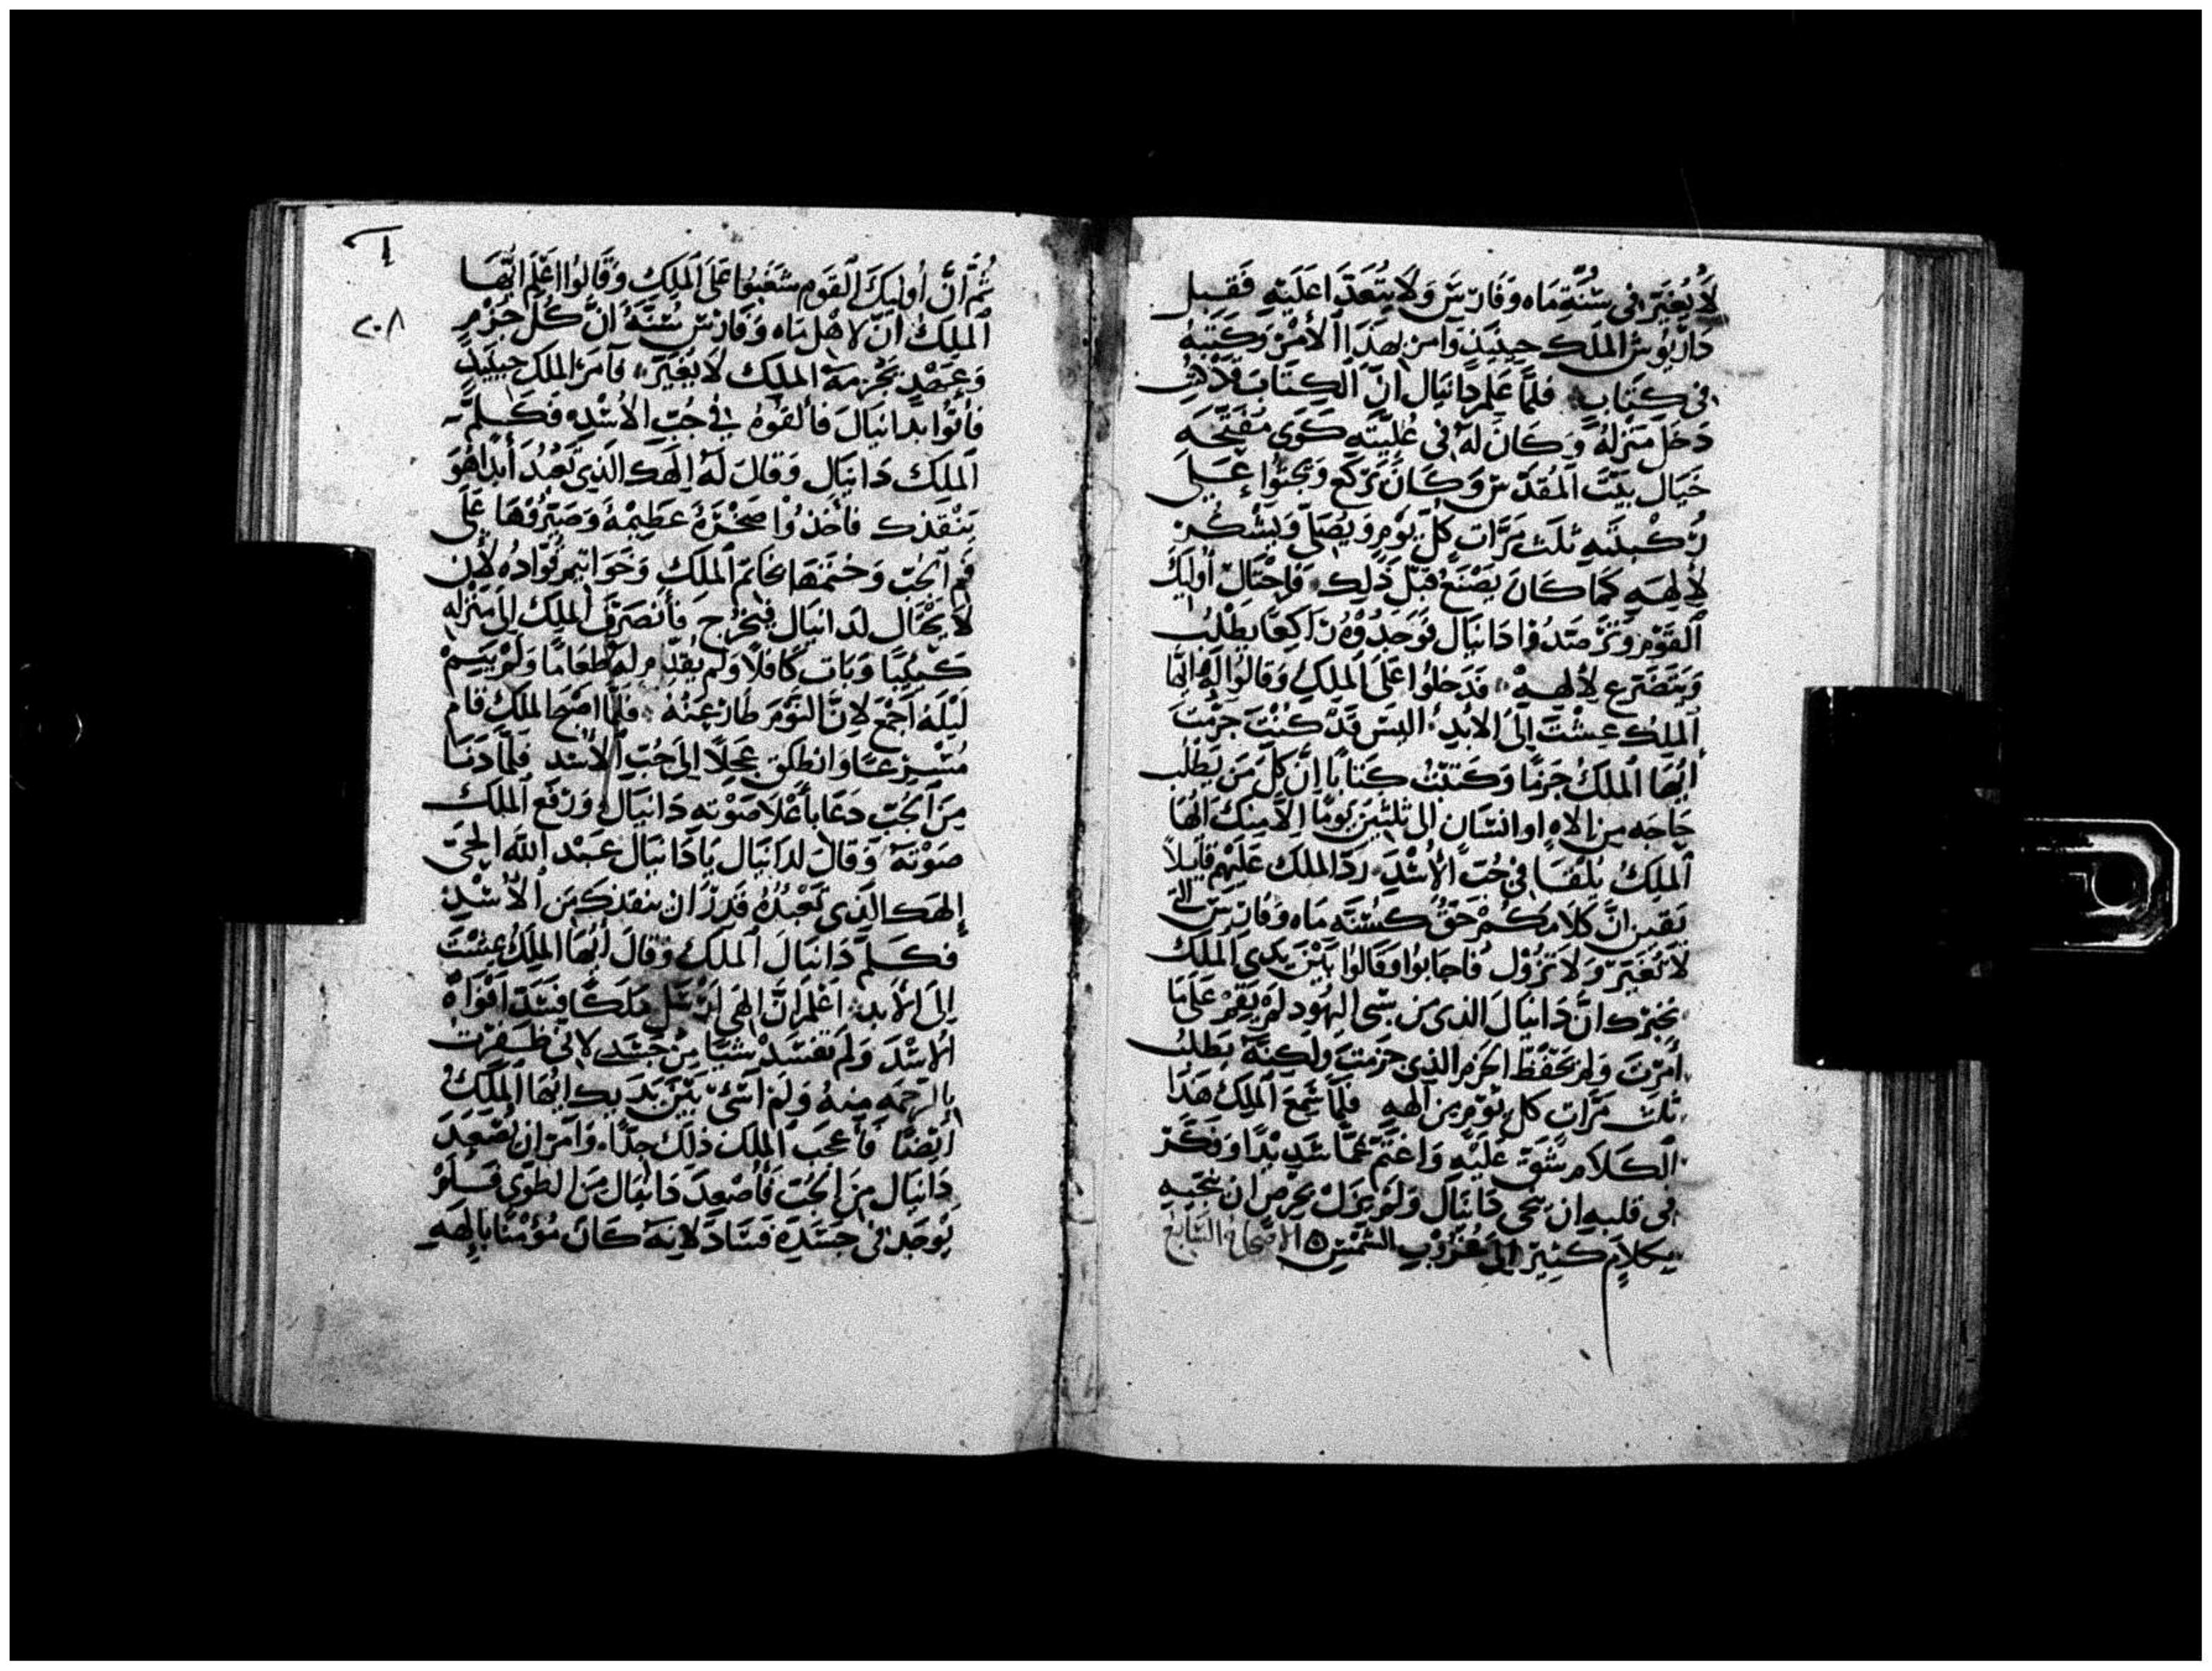 لَا يُغَيَّر في سُنَّة مَاه وفَارسَ وَلَا يُتَعَدَّا عَلَيْهِ فَقبل
دَاريُوش الملك حِينَيذ وَامر بهَذَا الأَمْر وَكتبهُ
في كِتَابٍ فلمّا عَلِمَ دَانيَال انّ الكِتَابَ قد
دَخَل مَنزلهُ وَكَانَ لهُ في عُلّيَّتِه كَوَى مُفَتَّحَه
حَيَال بيْت المُقدَّس وَكَانَ يَرْكَع وَيجثوا عَلَى
رُكْبتَيه ثلث مَرَّات كلّ يَوْمٍ وَيُصَلي وَيشْكر
لإلهِهِ كمَا كَانَ يَصْنَع قبْل ذَلِك فَاحْتَال أُوليَك
القَوْم وَترَصَّدُوا دَانيَال فوَجَدُوهُ رَاكِعًا يطْلبُ
وَيتضَرع لإلهِهْ فدَخلوا عَلَى الملِكِ وَقالوا لهُ ايّهَا
الملِك عِشْت إلى الأبدِ اليسَ قدْ كنْت جَزَمْت
ايّهَا الملكُ جَزمًا وَكتبْت كتابًا انّ كلّ مَن يَطْلُب
حَاجَه مِن الاهٍ او انسَان الى ثلثين يَومًا إلّا مِنك ايّهَا
الملِكُ يُلقَا في جُبّ الأُسْد ردّ الملك عَليْهم قايلًا
يَقين انّ كلامَكُمْ حَقٌّ كسُنّه مَاه وَفارسَ التى
لَا تُغَيَّر وَلَا تزُوْل فاجَابُوا وَقالوا بَيْن يَدي الملك
نخبرك انَّ دَانيال الذى من سَبى اليهُود لمْ يَقمْ عَلَى مَا
امَرْت وَلم يحْفظ الجَزم الذي جزمت ولكنّهُ يَطلبُ
ثلث مَرَّات كل يَوْم من إلهِهِ فلمّا سَمِعَ الملِك هَذَا
الكلام شَقّ عَليْهِ وَاغتمّ غمًّا شَديْدًا وَفكّرَ
في قلبهِ ان ينجي دَانيَال وَلم يَزَلْ يحْرص ان ينجّيه
بكلام كثير إلى غُرُوْب الشمْس الاصحاح السَّابع
٢٠٨
ثُمّ انّ أُوليَك القَوم شغَبُوا عَلَى الملِكِ وَقَالوا اعْلَم ايّهَا
الملكُ انّ لاهْل مَاه وَفارسَ سُنّةً انَّ كُلّ جَزْمٍ
وَعهْدٍ يجْزمهُ الملِك لَا يُغيَّر فامَرَ الملك حينيذٍ
فأتوْا بدَانيَال فألقَوْهُ في جُبّ الأُسْد فكلّم
الملك دَانيَال وَقالَ لهُ إلَهَك الذي تَعْبُد أبدًا هُوَ
يَنْقذك فأخذوا صخْرَةً عَظِيْمَةً وَصَيَّرُوْهَا عَلَى
فم الجُبّ وَختمَهَا بخاتم الملِك وَخوَاتيم قُوَّادُه لأن
لَا يحْتَال لدَانيَال فيخْرج فَأنصَرَفَ الملِك إلى مَنْزله
كئيبًا وَبَات كافلًا وَلم يُقدَّم لهُ طعَامًا وَلمْ ينَمْ
ليْلهُ أجمْع لانّ النّوْمَ طارَ عنْهُ فلمَّا اصْبَح الملك قام
مُسْرعًا وَانطلق عَجلًا إلى جُبّ الأُسْد فلمّا دَنَا
مِنَ الجُبّ دَعَا بأعْلا صَوْته دَانيَال وَرَفع الملك
صَوْتهُ وَقالَ لدَانيَال يَا دَانيَال عَبْد الله الحيّ
إلهك الذي تَعْبُدُهُ قدَرَ ان ينقذك من الأُسْد
فكلّم دَانيَالَ الملك وَقالَ أيّهَا الملِكُ عِشْت
إلَى الأبد اعْلم انّ إلهي ارْسَل مَلَكًا فسَدّ أفوَاه
الأسْد وَلم تفسِدْ شيْئًا مِنْ جَسَدي لاني ظَفرْت
بالرَّحمَه مِنهُ وَلمْ اسئ بَيْن يَدَيك ايّهَا الملكُ
أيْضًا فأعْجَبَ الملك ذلك جدًّا وَأمَرَ ان يُصْعِدَ
دَانيَال مِنَ الجُبّ فأصْعِدَ دَانيَال مِنَ الطوَى فلمْ
يُوجَد في جَسَدِه فسَادٌ لانّهُ كَان مُؤمْنًا بإلهِهِ